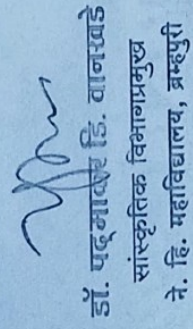 डॉ. पद्माकर डि. वानखडे
सांस्कृतिक विभागप्रमुख
ने. हि. महाविद्यालय, ब्रम्हपुरी